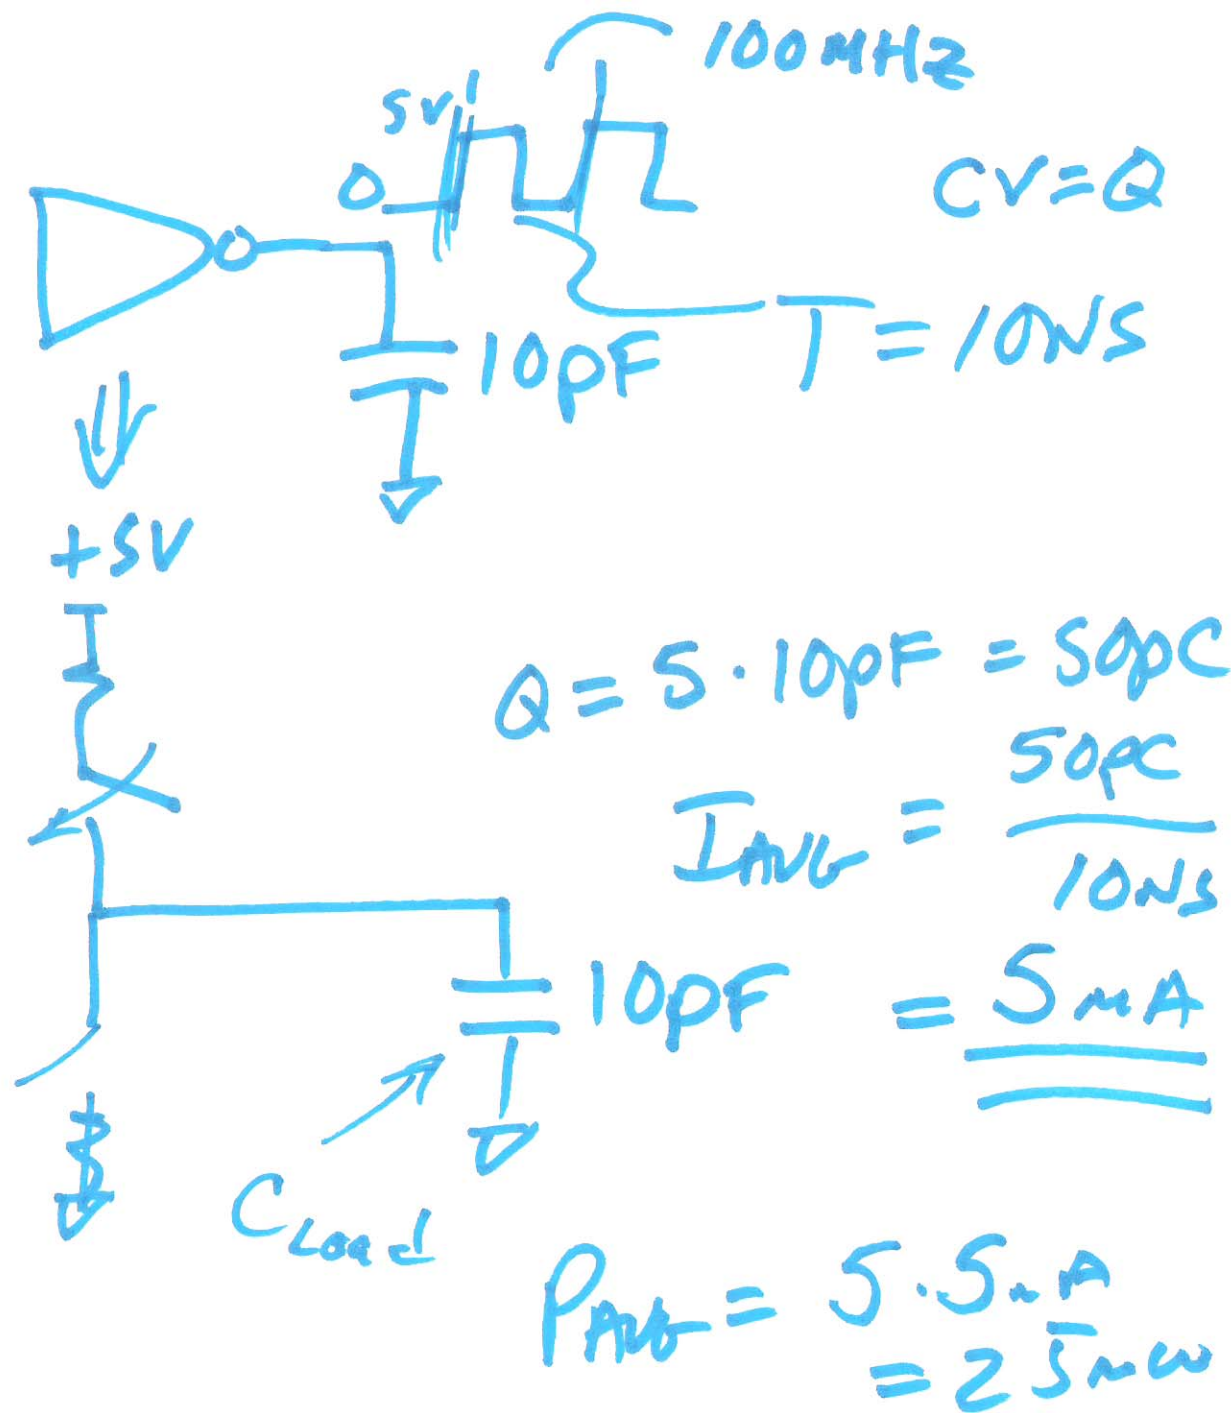 100MHZ
5V
0
CV=Q
T=10NS
10pF
+5V
Q=5·10pF=50pC
IAVG = 50pC
10NS
10pF
= 5mA
CLoad
PAVG = 5·5mA
= 25mW